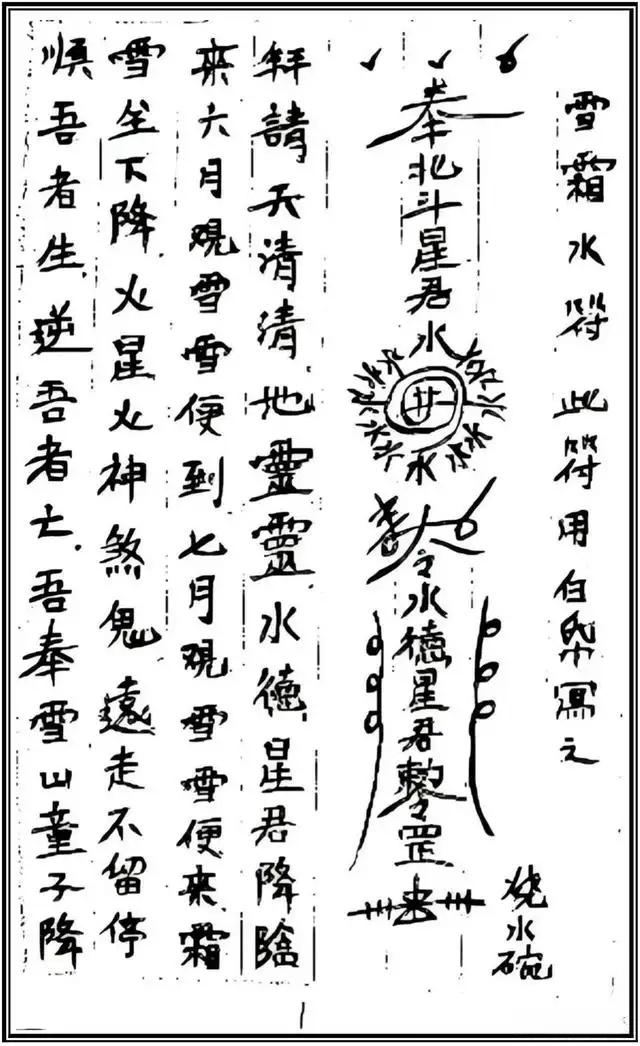 雪霜水符 此符用白帋寫之
烧水碗
奉北斗星君
水水水水水水
令水德星君敕令罡
拜請天清清地靈靈水德星君降臨
来六月覌雪雪便到七月覌雪雪便来霜
雪全下降火星火神煞鬼遠走不留停
順吾者生逆吾者亡吾奉雪山童子降